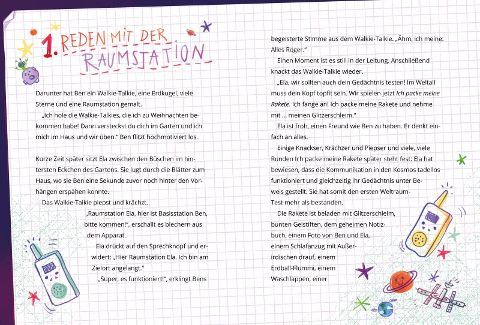 1. REDEN MIT DER
RAUMSTATION
Darunter hat Ben ein Walkie-Talkie, eine Erdkugel, viele
Sterne und eine Raumstation gemalt.
„Ich hole die Walkie-Talkies, die ich zu Weihnachten be-
kommen habe! Dann versteckst du dich im Garten und ich
mich im Haus und wir üben.“ Ben flitzt hochmotiviert los.
Kurze Zeit später sitzt Ela zwischen den Büschen im hin-
tersten Eckchen des Gartens. Sie lugt durch die Blätter zum
Haus, wo sie Ben eine Sekunde zuvor noch hinter den Vor-
hängen erspähen konnte.
Das Walkie-Talkie piepst und krächzt.
„Raumstation Ela, hier ist Basisstation Ben,
bitte kommen!“, erschallt es blechern aus
dem Apparat.
Ela drückt auf den Sprechknopf und er-
widert: „Hier Raumstation Ela. Ich bin am
Zielort angelangt.“
„Super, es funktioniert!“, erklingt Bens
begeisterte Stimme aus dem Walkie-Talkie. „Ähm, ich meine:
Alles Roger.“
Einen Moment ist es still in der Leitung. Anschließend
knackt das Walkie-Talkie wieder.
„Ela, wir sollten auch den Gedächtnis testen! Im Weltall
muss dein Kopf topfit sein. Wir spielen jetzt Ich packe meine
Rakete. Ich fange an! Ich packe meine Rakete und nehme
mit ... meinen Glitzerschleim.“
Ela ist froh, einen Freund wie Ben zu haben. Er denkt ein-
fach an alles.
Einige Knackser, Krächzer und Piepser und viele, viele
Runden Ich packe meine Rakete später steht fest: Ela hat
bewiesen, dass die Kommunikation in den Kosmos tadellos
funktioniert und gleichzeitig ihr Gedächtnis unter Be-
weis gestellt. Sie hat somit den ersten Weltraum-
Test mehr als bestanden.
Die Rakete ist beladen mit Glitzerschleim,
bunten Geistiften, dem geheimen Notiz-
buch, einem Foto von Ben und Ela,
einem Schlafanzug mit Außer-
irdischen drauf, einem
Erdball-Flummi, einem
Waschlappen, einer